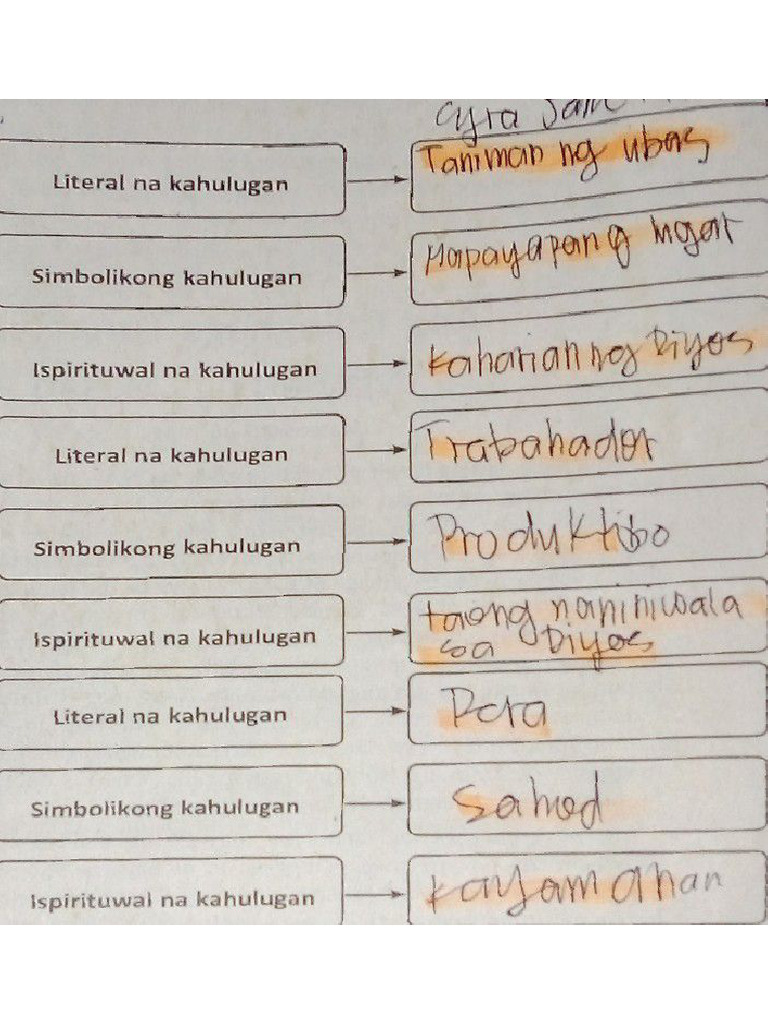 Cyra Jam
Literal na kahulugan
Taniman ng ubas
Simbolikong kahulugan
Mapayapang lugar
Ispirituwal na kahulugan
Kaharian ng Diyos
Literal na kahulugan
Trabahador
Simbolikong kahulugan
Produktibo
Ispirituwal na kahulugan
taong naniniwala
sa Diyos
Literal na kahulugan
Pera
Simbolikong kahulugan
Sahod
Ispirituwal na kahulugan
Kayamanan